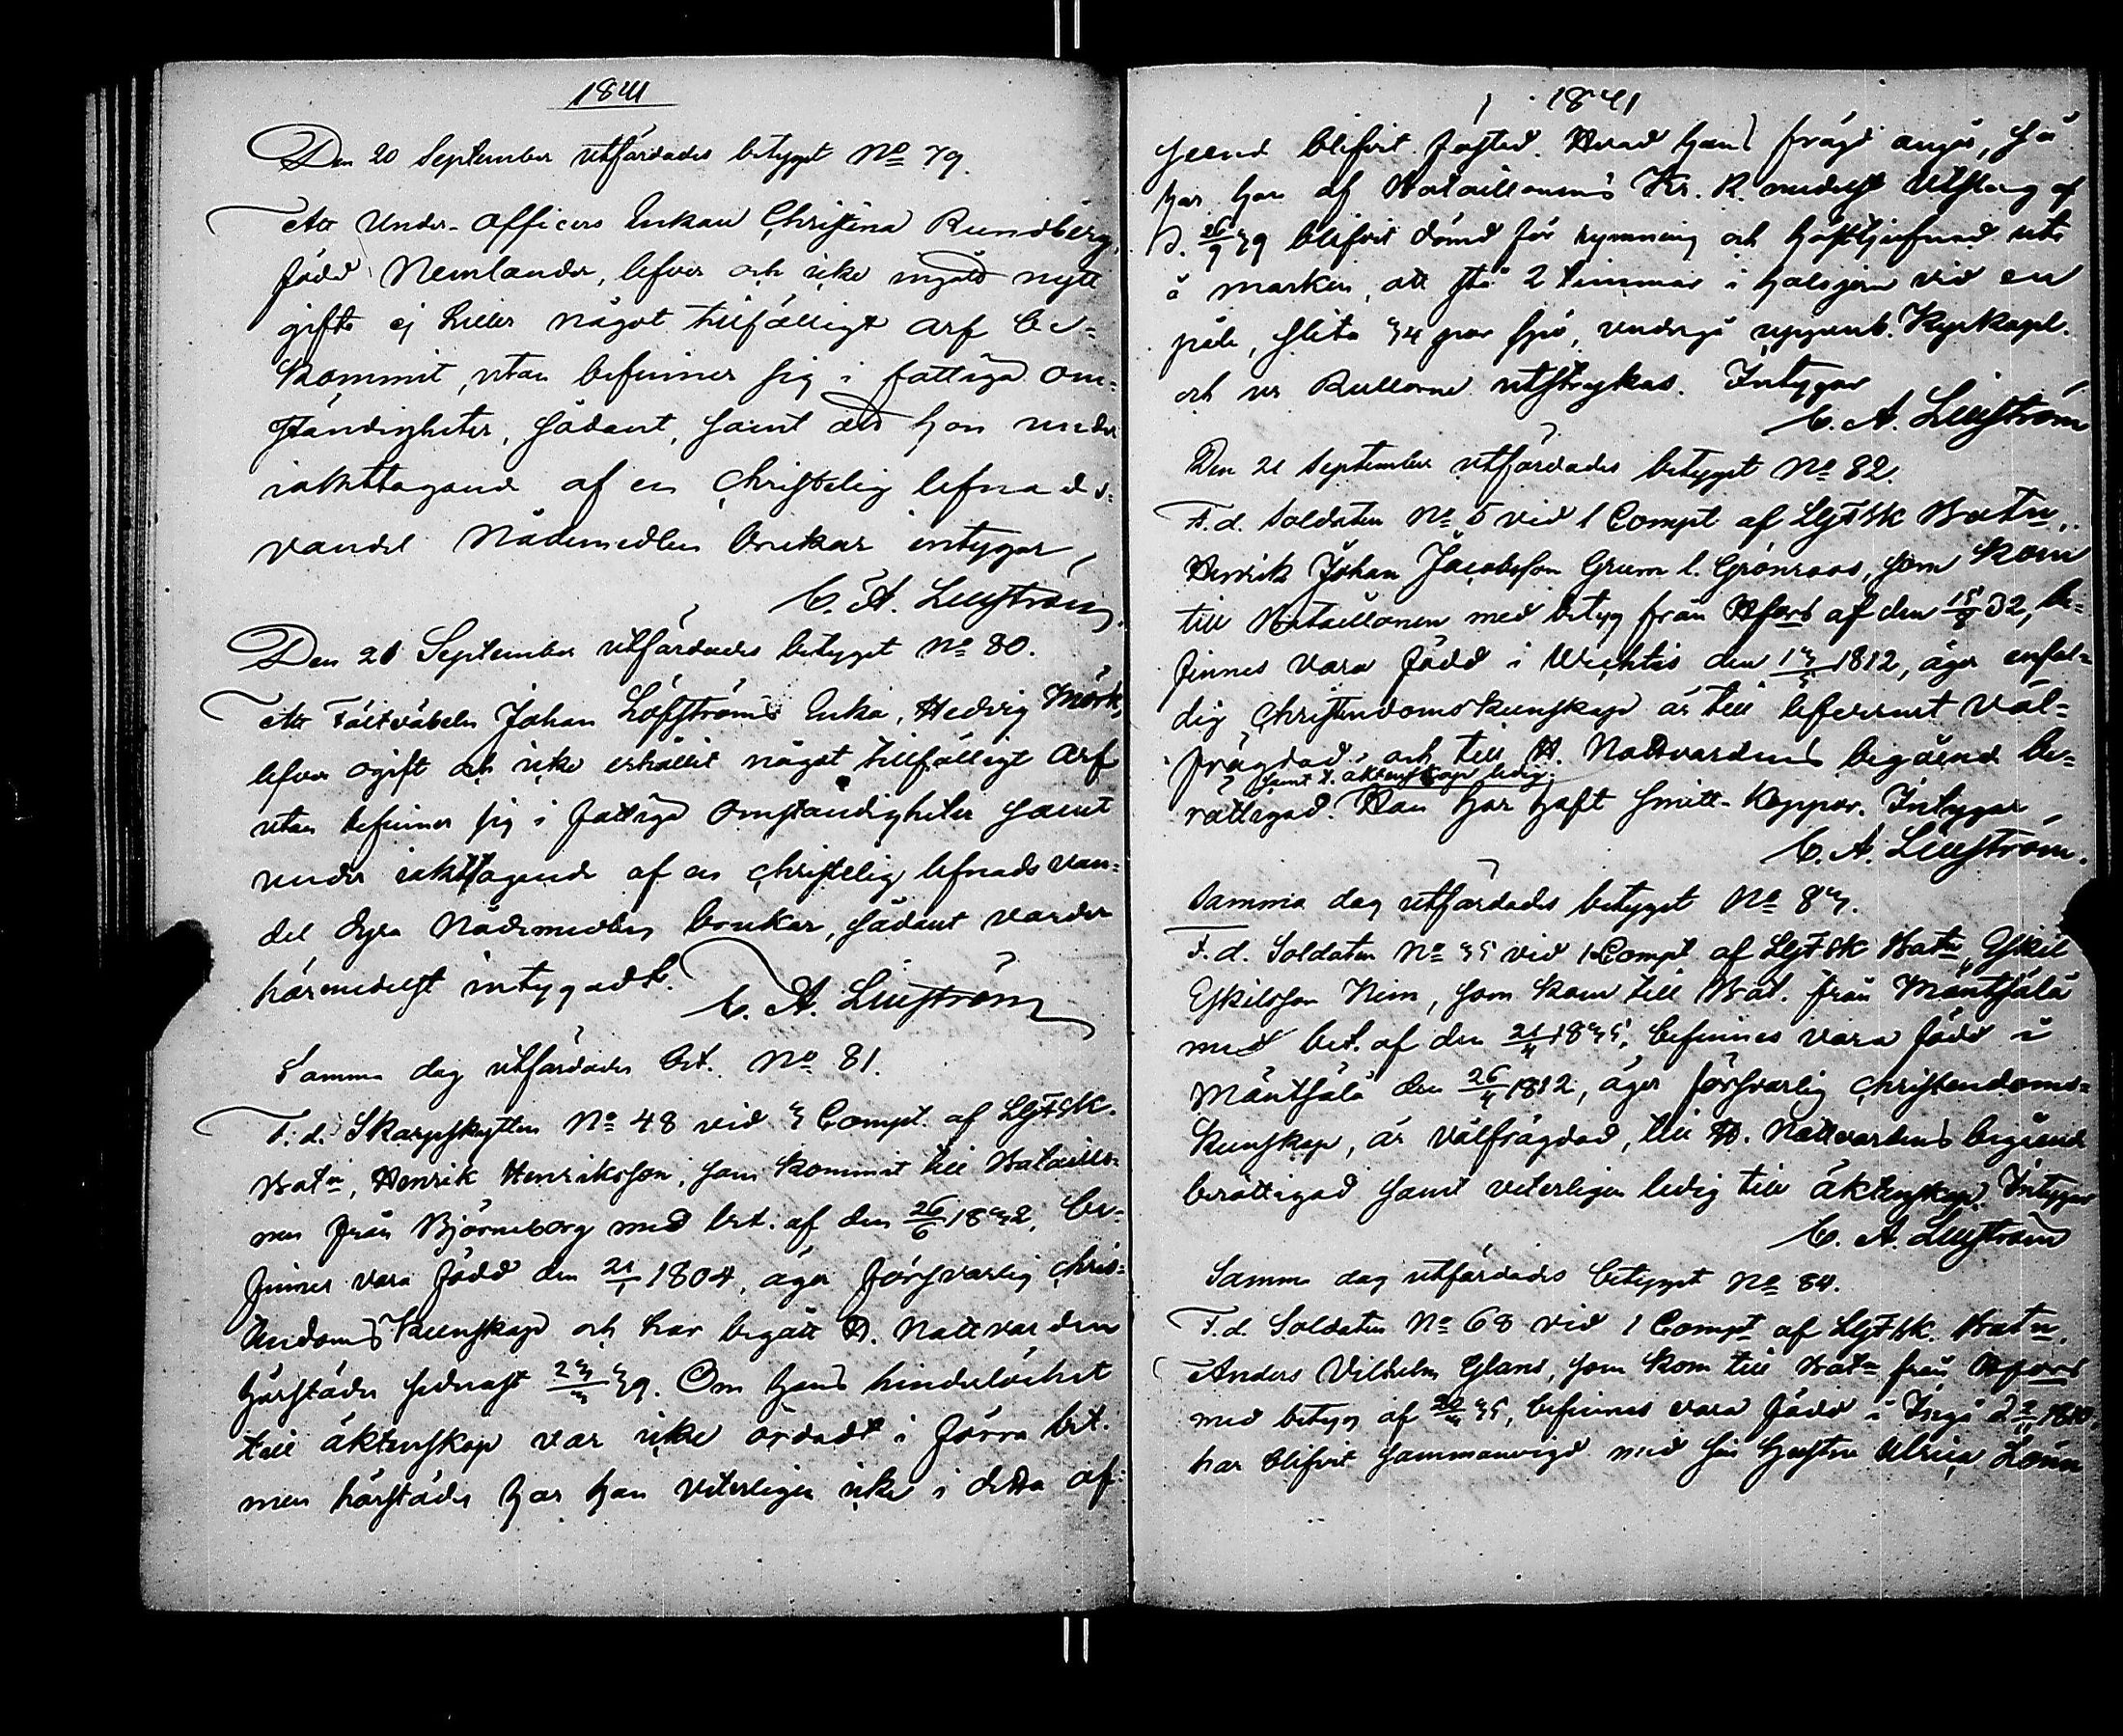 1841
Den 20 September utfärdades betyget No 79.
Att Under-Officers Enkan Christina Rundberg,
född Nemlander, lefver och icke ingått nytt
gifte ej heller något tillfälligt arf be-
kommit, utan befinner sig i fattiga om-
ständigheter, sådant, samt att hon under
iakttagande af en Christelig lefnads-
vandel Nådemedlen brukar intygar,
C. A. Liljström
Den 21 September utfärdades betyget No 80.
Att Fältväbeln Johan Löfströms Enka, Hedvig Mörk,
lefver ogift och icke erhållit något tillfälligt arf
utan befinner sig i fattiga omständigheter samt
under iakttagende af en christelig lefnadsvan-
del dyra Nådemedlen brukar, sådant varder
härmedelst intygadt.
C. A. Liljström
Samma dag utfärdades bet. No 81.
F. d. Skarpskytten No 48 vid 3 Compt. af LgFSk.
Batn, Henrik Henriksson, som kommit till Bataillo-
nen från Björneborg med bet. af den 26/6 1832, be-
finnes vara född den 21/1 1804, äger försvarlig chris-
tendoms kunskap och har begått H. Nattvarden
härstädes sednast 23/3 39. Om hans hinderlöshet
till äktenskap var icke ordadt i förra bet.
men härstädes har han veterligen icke i detta af-
1841
seend blifvit fästad. Hvad hans frägd angår, så
har han af Bataillonens Kr. R. medelst Utslag af
d. 26/9 39 blifvit dömd för rymning och häfttjufnad ute
å marken, att stå 2 timmar i halsjern vid en
påle, slita 34 par spö, undergå uppenb. Kyrkopl.
och ur Rullorne utstrykas. Intygar
C. A. Liljström
Den 21 September utfärdades betyget No 82.
F. d. Soldaten No 5 vid 1 Compt af LgFSk Batn,
Henrik Johan Jacobsson Grum l. Grönroos, som kom
till Bataillonen med betyg från Hfors af den 15/8 32, be-
finnes vara född i Wichtis den 13/3 1812, äger enfal-
dig Christendomskunskap är till lefvernet väl-
frägdad och till H. Nattvardens begående be-
samt t. äktenskap ledig.
rättigad. Han har haft smitt-koppor. Intygar
C. A. Liljström.
Samma dag utfärdades betyget No 83.
F. d. Soldaten No 35 vid 1 Compt af LgFSk Batn, Eskil
Eskilsson Him, som kom till Bat. från Mäntsälä
med bet. af den 21/4 1835, befinnes vara född i
Mäntsälä den 26/4 1812, äger försvarlig christendoms-
kunskap, är välfrägdad, till H. Nattvardens begående
berättigad samt veterligen ledig till äktenskap. Intygar
C. A. Liljström
Samma dag utfärdades betyget No 84.
F. d. Soldaten No 68 vid 1 Compt af LgFSk. Batn,
Anders Vilhelm Glans, som kom till Batn från Hfors
med betyg af 20/3 35, befinnes vara född i Ingå d 2/11 1810,
har blifvit sammanvigd med sin hustru Ulrica Lönn